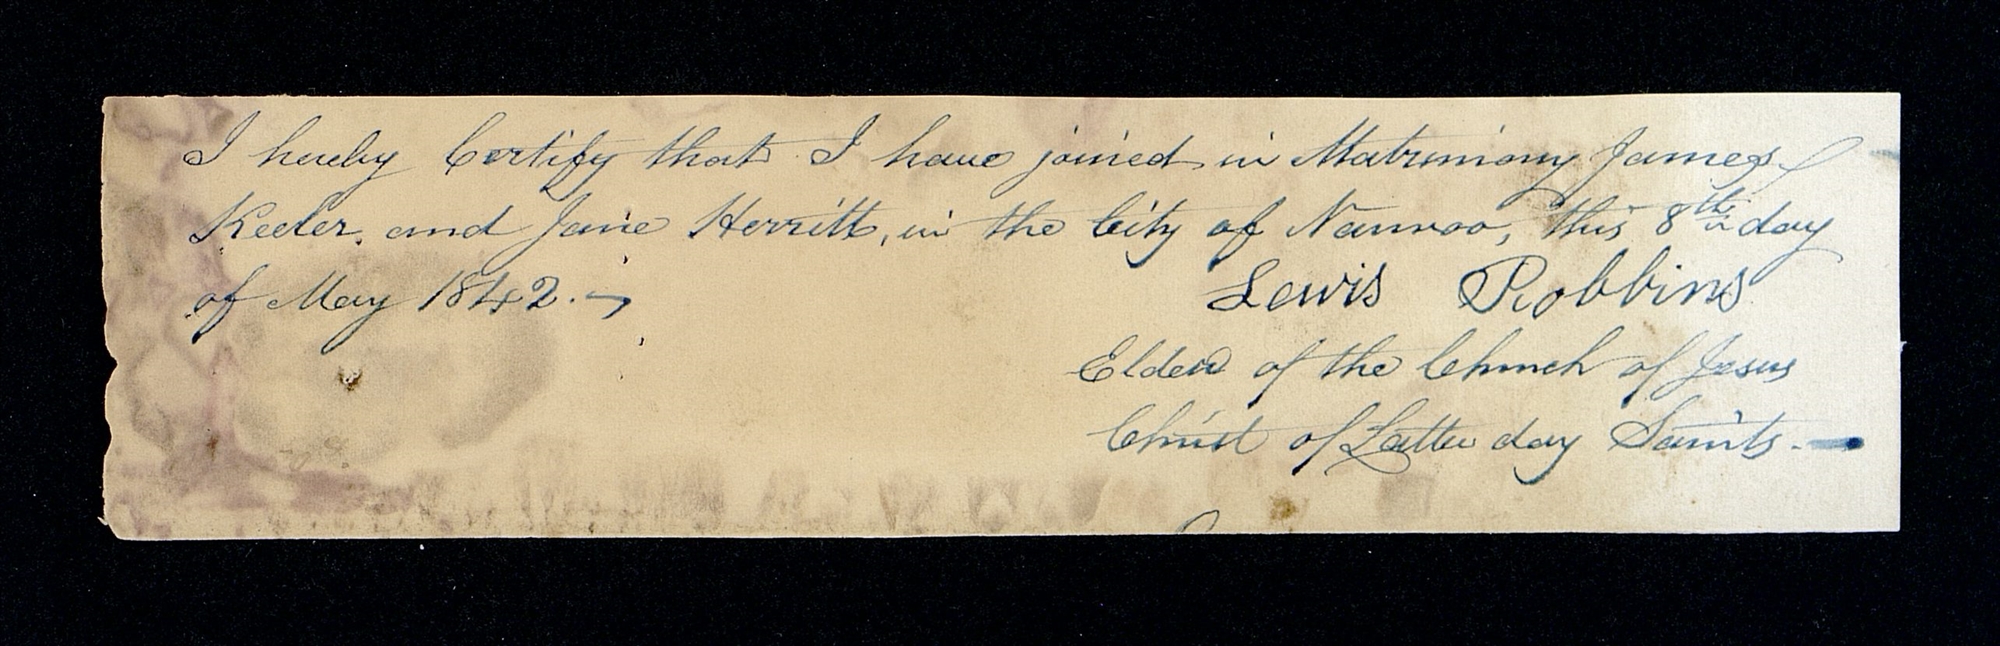 I hereby Certify that I have joined in Matrimony James
Keeler, and Jane Herritt, in the City of Nauvoo, this 8th day
of May 1842. —
Lewis Robbins
Elder of the Church of Jesus
Christ of Latter day Saints. —